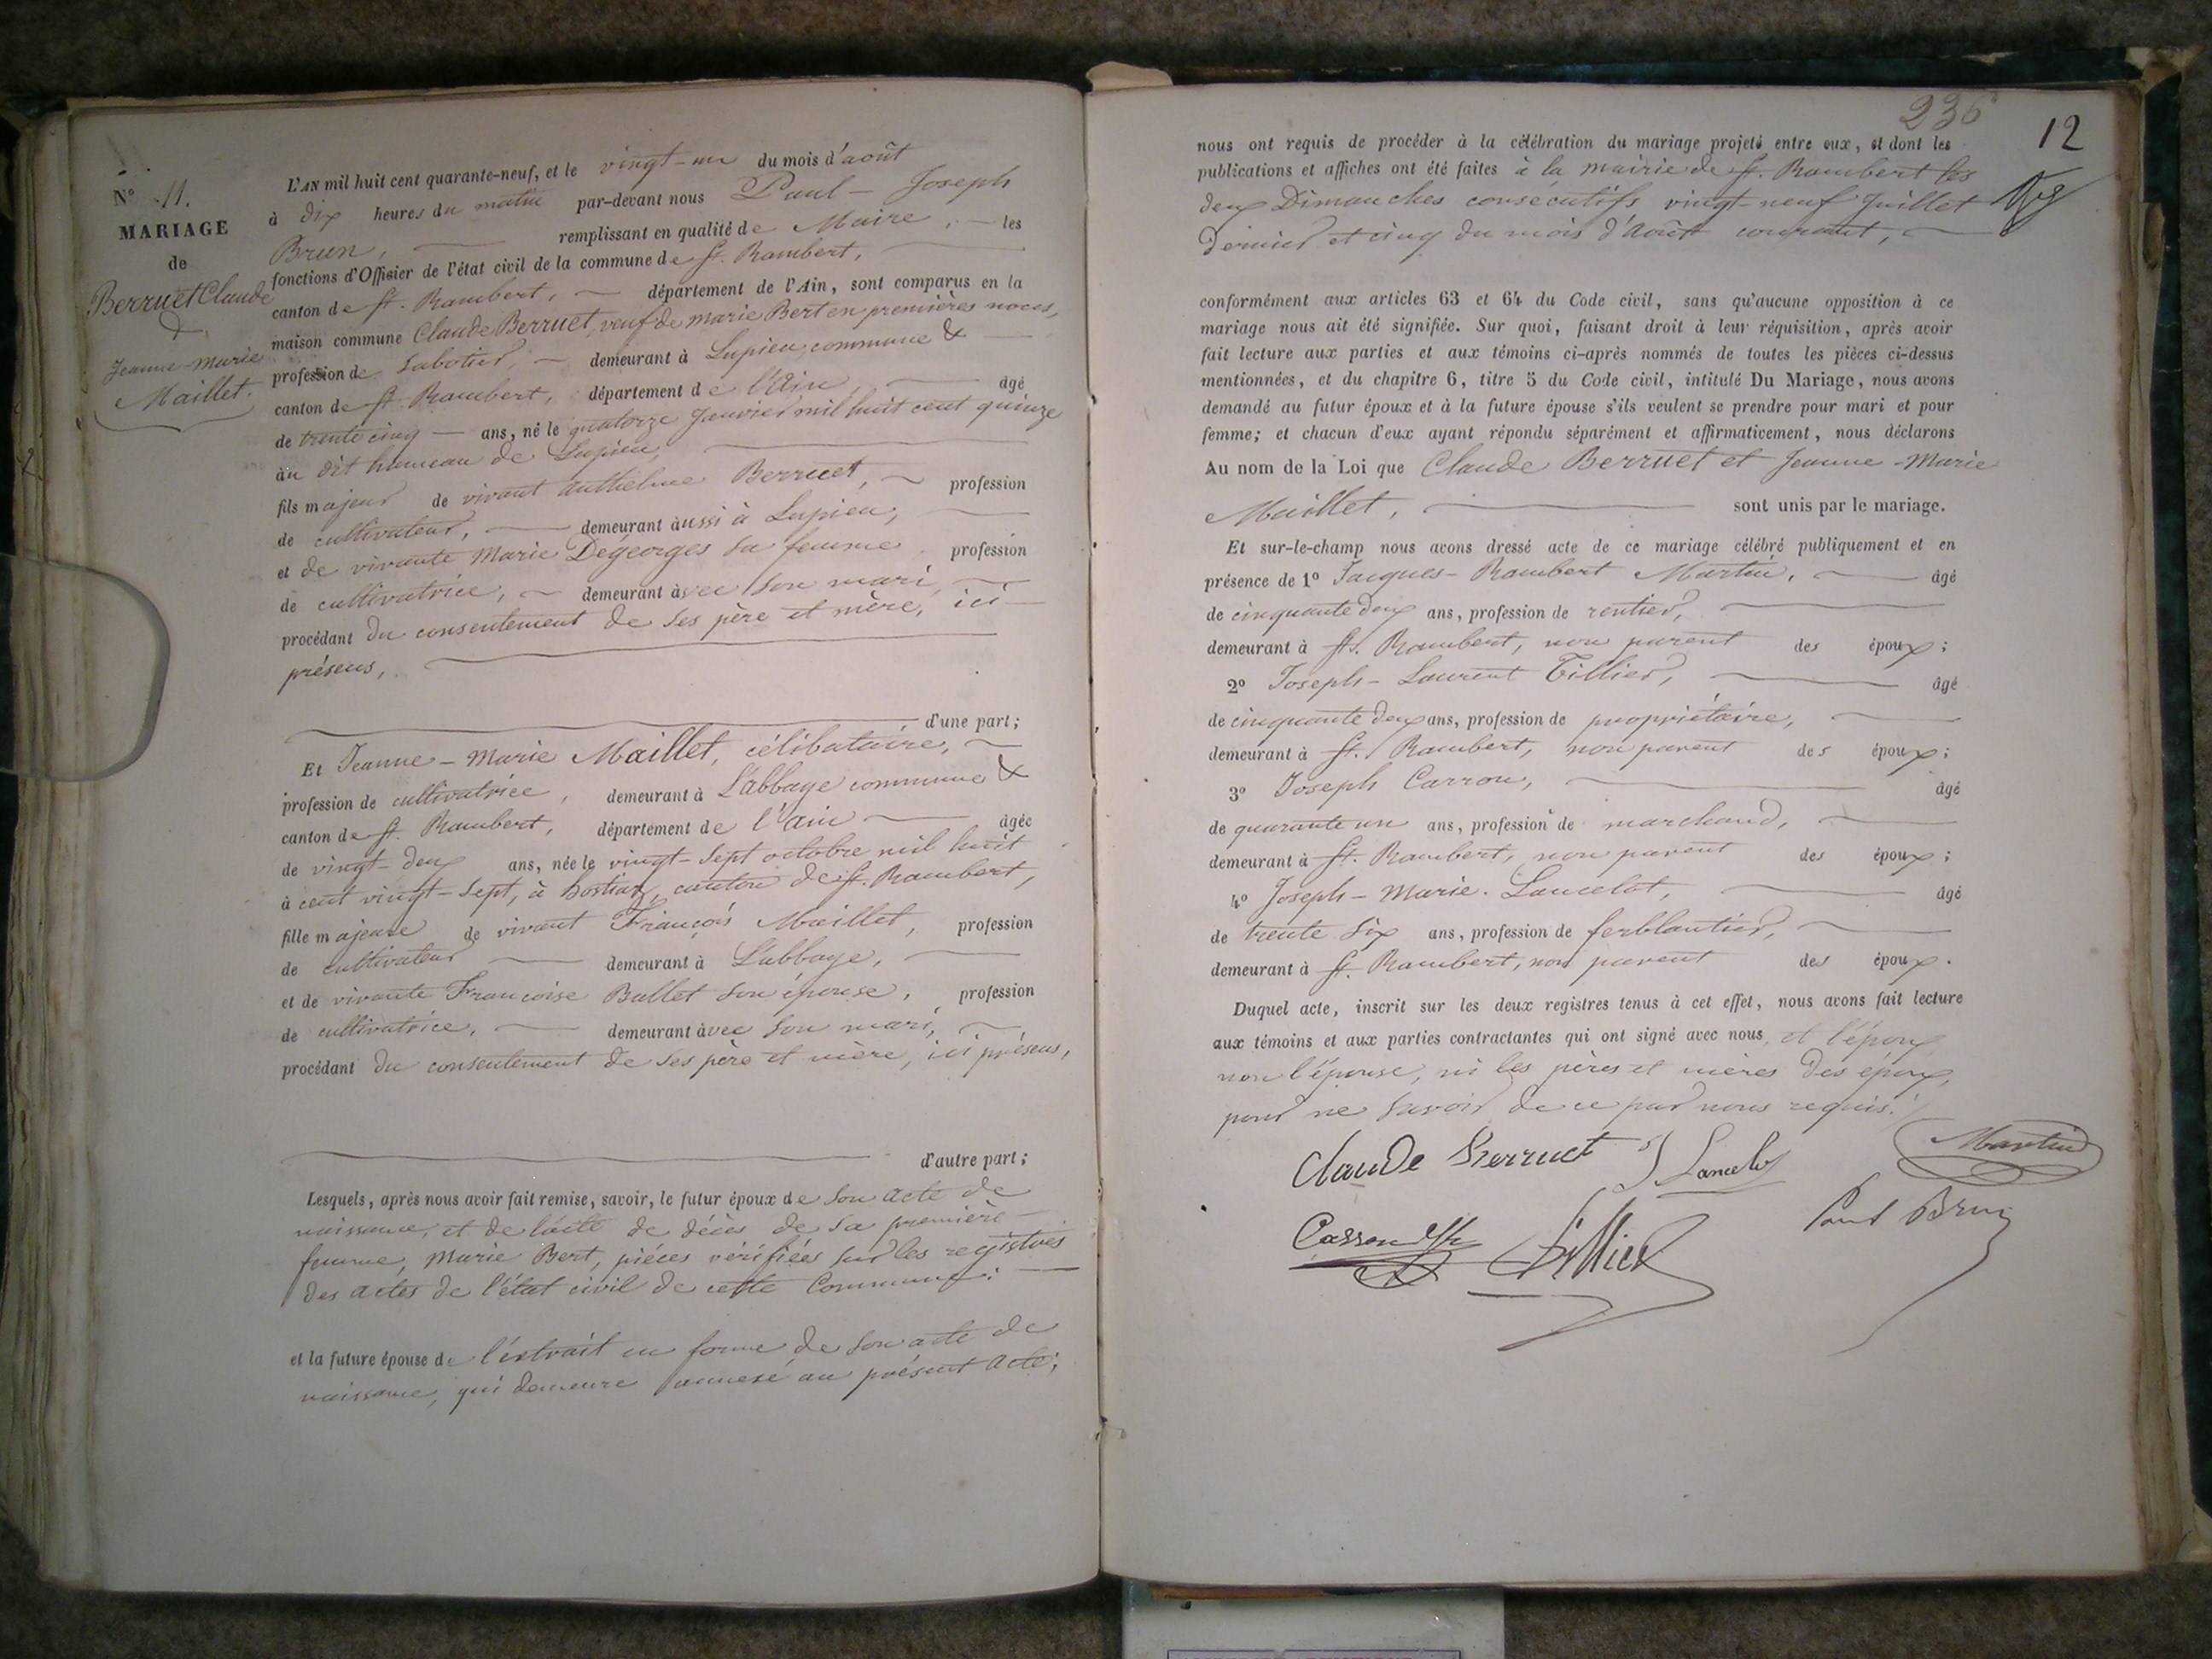 N° 11.
MARIAGE
de
Berruet Claude
&
Jeanne-Marie
Maillet.
L'AN mil huit cent quarante-neuf, et le vingt-un du mois d'août
à dix heures du matin par-devant nous Paul-Joseph
Brun, remplissant en qualité de Maire, les
fonctions d'Officier de l'état civil de la commune de St. Rambert,
canton de St. Rambert, département de l'Ain, sont comparus en la
maison commune Claude Berruet, veuf de Marie Bert en premières noces,
profession de Sabotier, demeurant à Lupieu, commune &
canton de St. Rambert, département de l'Ain, âgé
de trente cinq ans, né le quatorze Janvier mil huit cent quinze
au dit hameau de Lupieu,
fils majeur de vivant Anthelme Berruet, profession
de cultivateur, demeurant aussi à Lupieu,
et de vivante Marie Dégeorges sa femme profession
de cultivatrice, demeurant avec son mari,
procédant du consentement de ses père et mère, ici
présens,
d'une part;
Et Jeanne-Marie Maillet, célibataire,
profession de cultivatrice, demeurant à L'abbaye commune &
canton de St. Rambert, département de l'Ain âgée
de vingt-deux ans, née le vingt-sept octobre mil huit
à cent vingt-sept, à hostiaz, canton de St. Rambert,
fille majeure de vivant François Maillet, profession
de cultivateur demeurant à L'abbaye,
et de vivante Françoise Ballet son épouse, profession
de cultivatrice, demeurant avec son mari,
procédant du consentement de ses père et mère, ici présens,
d'autre part;
Lesquels, après nous avoir fait remise, savoir, le futur époux de son acte de
naissance, et de l'acte de décès de sa première
femme, Marie Bert, pièces vérifiées sur les registres
des actes de l'état civil de cette Commune:
et la future épouse de l'extrait en forme de son acte de
naissance, qui demeure annexé au présent acte;
236
12
nous ont requis de procéder à la célébration du mariage projeté entre eux, et dont les
publications et affiches ont été faites à la mairie de St. Rambert les
deux Dimanches consécutifs vingt-neuf Juillet
dernier et cinq du mois d'Août courant,
conformément aux articles 63 et 64 du Code civil, sans qu'aucune opposition à ce
mariage nous ait été signifiée. Sur quoi, faisant droit à leur réquisition, après avoir
fait lecture aux parties et aux témoins ci-après nommés de toutes les pièces ci-dessus
mentionnées, et du chapitre 6, titre 5 du Code civil, intitulé Du Mariage, nous avons
demandé au futur époux et à la future épouse s'ils veulent se prendre pour mari et pour
femme; et chacun d'eux ayant répondu séparément et affirmativement, nous déclarons
Au nom de la Loi que Claude Berruet et Jeanne-Marie
Maillet, sont unis par le mariage.
Et sur-le-champ nous avons dressé acte de ce mariage célébré publiquement et en
présence de 1° Jacques-Rambert Martin, âgé
de cinquante deux ans, profession de rentier,
demeurant à St. Rambert, non parent des époux;
2° Joseph-Laurent Tillier, âgé
de cinquante deux ans, profession de propriétaire,
demeurant à St. Rambert, non parent des époux;
3° Joseph Carron, âgé
de quarante un ans, profession de marchand,
demeurant à St. Rambert, non parent des époux;
4° Joseph-Marie Lancelot, âgé
de trente six ans, profession de ferblantier,
demeurant à St. Rambert, non parent des époux.
Duquel acte, inscrit sur les deux registres tenus à cet effet, nous avons fait lecture
aux témoins et aux parties contractantes qui ont signé avec nous, et l'époux
non l'épouse, ni les pères et mères des époux,
pour ne savoir de ce par nous requis.
Claude Berruet J Lancelot Martin
Carron Tillier Paul Brun